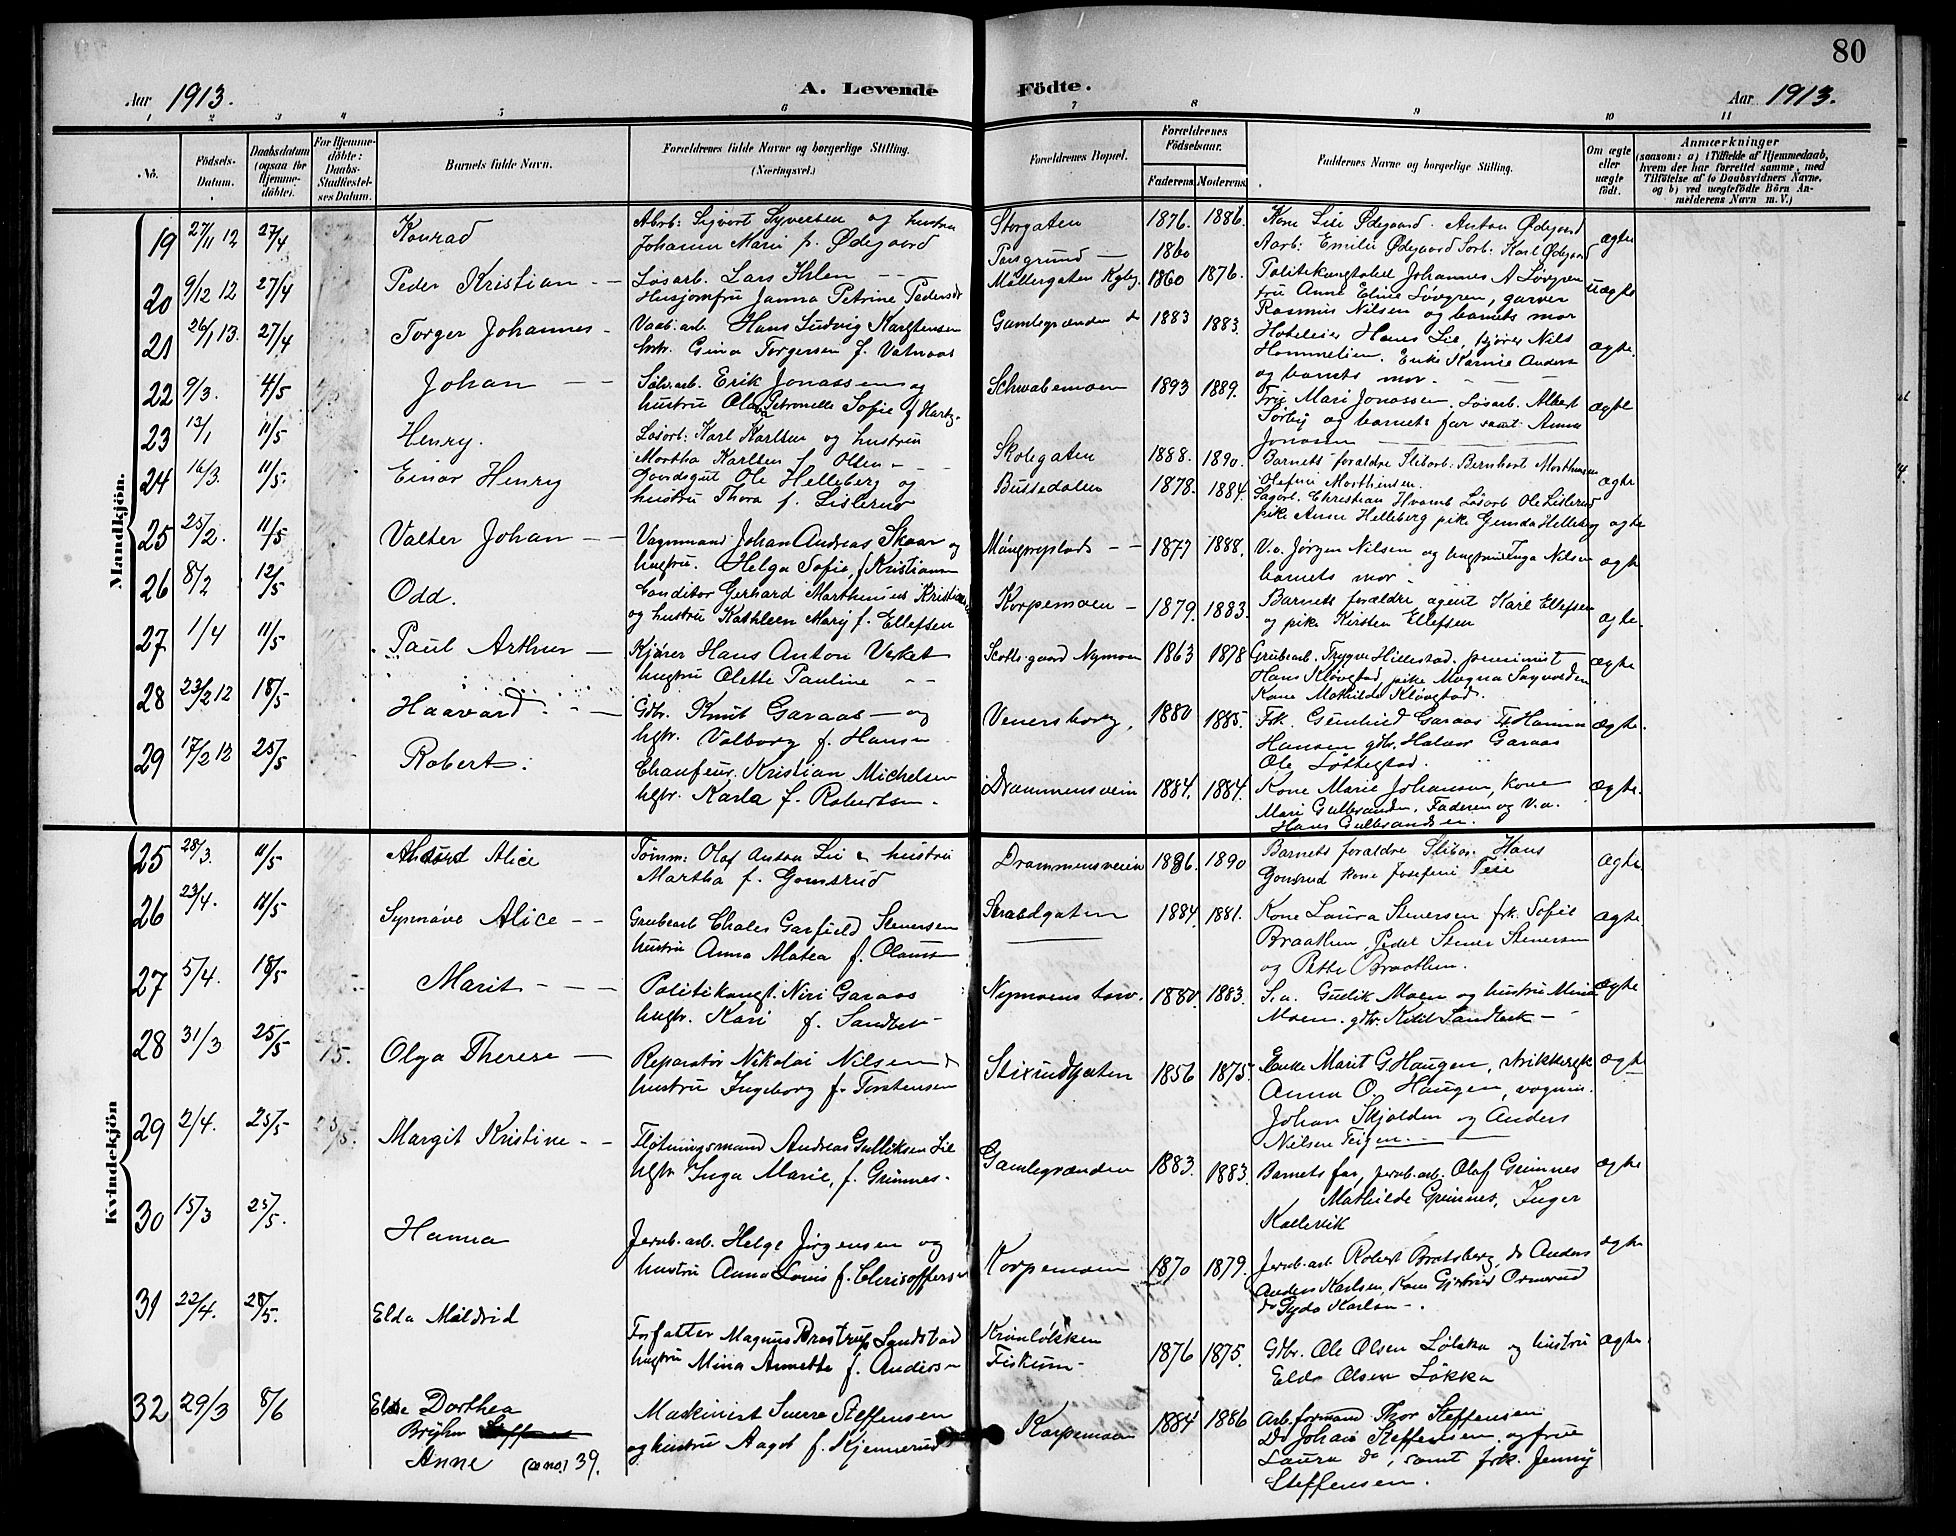 80
Aar 1913.
A. Levende Födte.
Aar 1913.
1 2 3 4 5 6 7 8 9 10 11
No.
Födsels-Datum.
Daabsdatum (ogsaa for Hjemme-döbte).
For Hjemme-döbte: Daabs-Stadfæstel-ses Datum.
Barnets fulde Navn.
Forældrenes fulde Navne og borgerlige Stilling. (Næringsvei.)
Forældrenes Bopæl.
Forældrenes Födselsaar.
Faderens. Moderens.
Faddernes Navne og borgerlige Stilling.
Om ægte eller uægte født.
Anmærkninger
(saasom: a) i Tilfælde af Hjemmedaab, hvem der har forrettet samme, med Tilföielse af to Daabsvidners Navne, og b) ved uægtefödte Börn An-melderens Navn m. V.)
Mandkjön.
19 27/11 12 27/4 Konrad
Sigvart Syversen og hustru
Johanne Marie f. Ødegaard
Storgaten 1876. 1886.
Kone Lie Ødegaard. Anton Ødegaard
Aarb: Emilie Ødegaard Karl Ødegaard
ægte
20 9/12 12 27/4 Peder Kristian
Løsarb. Lars Ihlen
Husjomfru Janna Petrine Pedersdt
Porsgrund 1860
Møllergaten Kgbg. 1860 1876.
Politikonstabel Johannes A Løvgren
fru Anne Eline Løvgren, garver
Rasmus Nilsen og barnets mor
uægte
21 26/1 13. 27/4 Torger Johannes
Hans Ludvig Karlstensen
hstr. Gina Torgersen f. Vatnaas
Gamlegrænden 1883 1883.
Hoteleier Hans Lie, kjører Nils
Hommelien. Enke Karine Anders
og barnets mor.
ægte.
22 9/3. 4/5 Johan
Sølvarb. Erik Jonassen og
hustru Olava Petronelle Sofie f Hartz
Schwabemoen 1893 1889.
Fru Mari Jonassen, Løsarb. Albert
Sørby og barnets far samt Anna
Jonassen
ægte
23 13/1 11/5 Henry.
Løsarb: Karl Karlsen og hustru
Martha Karlsen f Olsen
Skolegaten 1888. 1890.
Barnets forældre Slibarb: Bernhart Marthinsen
Olefine Marthinsen.
24 16/3. 11/5 Einar Henry
Ole Helleberg og
hustru Thora f. Lislerud
Bussedalen 1878. 1884.
Sagarb. Christian Hvamb Løsarb Ole Lislerud
pike Anne Helleberg pike Gunda Helleberg
ægte
25 25/2. 11/5 Valter Johan
Vognmand Johan Andreas Skaar og
hustru. Helga Sofie, f Kristiansen
1877 1888.
V.a. Jørgen Nilsen og hustru Inga Nilsen
barnets mor
ægte
26 8/2 12/5 Odd.
Conditor Gerhard Marthinius Kristiansen
og hustru Kathleen Mary f. Ellefsen
Korpemoen 1879. 1883.
Barnets forældre agent Karl Ellefsen
og pike Kirsten Ellefsen
ægte.
27 1/4 11/5 Paul Arthur
Kjører Hans Anton Verket
hustru Olette Pauline
Scotts-gaard Nymoen 1863 1878
Grubearb. Trygve Hillestad. pensionist
Hans Kløvstad, pike Magna Sagvolden
Kone Mathilde Kløvstad.
ægte
28 23/2 12 18/5 Haavard
Gdbr. Knut Garaas og
hstr. Valborg f. Hansen
Venersborg, 1880 1885.
Frk. Gunhild Garaas Fr Hanna
Hansen gdbr. Halvor Garaas
Ole Løstegtad.
ægte.
29 17/2 13 25/5 Robert.
Chauffeur. Kristian Michelsen
hstr. Karla f. Robertsen.
Drammensvein 1884. 1884.
Kone Marie Johansen, kone
Mari Gulbrandsen, Faderen og V.a.
Hans Gulbrandsen.
ægte.
Kvindekjön
25 28/3. 11/5 Alice
Tømm: Olaf Anton Lie & hustru
Martha f. Gomsrud
Drammensveien 1886. 1890
Barnets forældre Slibar. Hans
Gomsrud kone Josefine Teie
ægte.
26 23/4. 11/5 Synnøve Alice
Grubearb Chales Garfield Stenersen
hustru Anna Matea f. Olausen
Strandgaten 1884. 1881.
Kone Laura Stenersen frk. Sofie
Braathen, Peder Stener Stenersen
og Petter Braathen.
ægte.
27 5/4. 18/5 Marit
Politikonst. Niri Garaas
hustr. Kari f. Sandbek
Nymoens torv. 1880. 1883.
S.a. Gudik Moen og hustru Mina
Moen. gdbr. Ketil Sandbæk
ægte
28 31/3 25/5 Olga Therese
Reparatør Nikolai Nilsen &
hustru Ingeborg f. Torstensen
Stixrudgaten 1856 1875.
Enke Marit G Haugen, strikkersk
Anna O. Haugen, vognm.
Johan Skjolden og Anders
Nilsen Teigen.
ægte
29 2/4. 25/5 Margit Kristine
Fløtningsmand Andreas Gulliksen Lie
hstr Inga Marie, f. Grimnes.
Gamlegrænden 1883. 1883.
Barnets far, Jernb.arb. Olaf Grimnes
Mathilde Grimnes, Inger
Kallevik
ægte
30 15/3 25/5. Hanna
Jernb.arb. Helge Jørgensen og
hustru Anna Lovis f. Christoffersen
Korpemoen 1870 1879.
Jernb.arb Robert Bratsberg, do Anders
Anders Karlsen, Kone Gjertrud Ormerud
do Gyda Karlsen.
ægte
31 22/4. 25/5. Elda Møldrid
Forfatter Magnus Brostrup Landstad
hustru Mina Annette f. Andersen
Kronløkken
Fiskum 1876 1875.
Gdbr. Ole Olsen Løkka og hustru
Elda Olsen Løkka
ægte
32 29/3 8/6 Else Dorthea
Bryhn
Anne (ano.) 39.
Maskinist Sverre Steffensen
og hustru Aagot f. Kjennerud
Korpemoen 1884 1886
Arb.formand Thor Steffensen
Do Johan Steffensen og frue
Laura do, samt frk. Jenny
Steffensen.